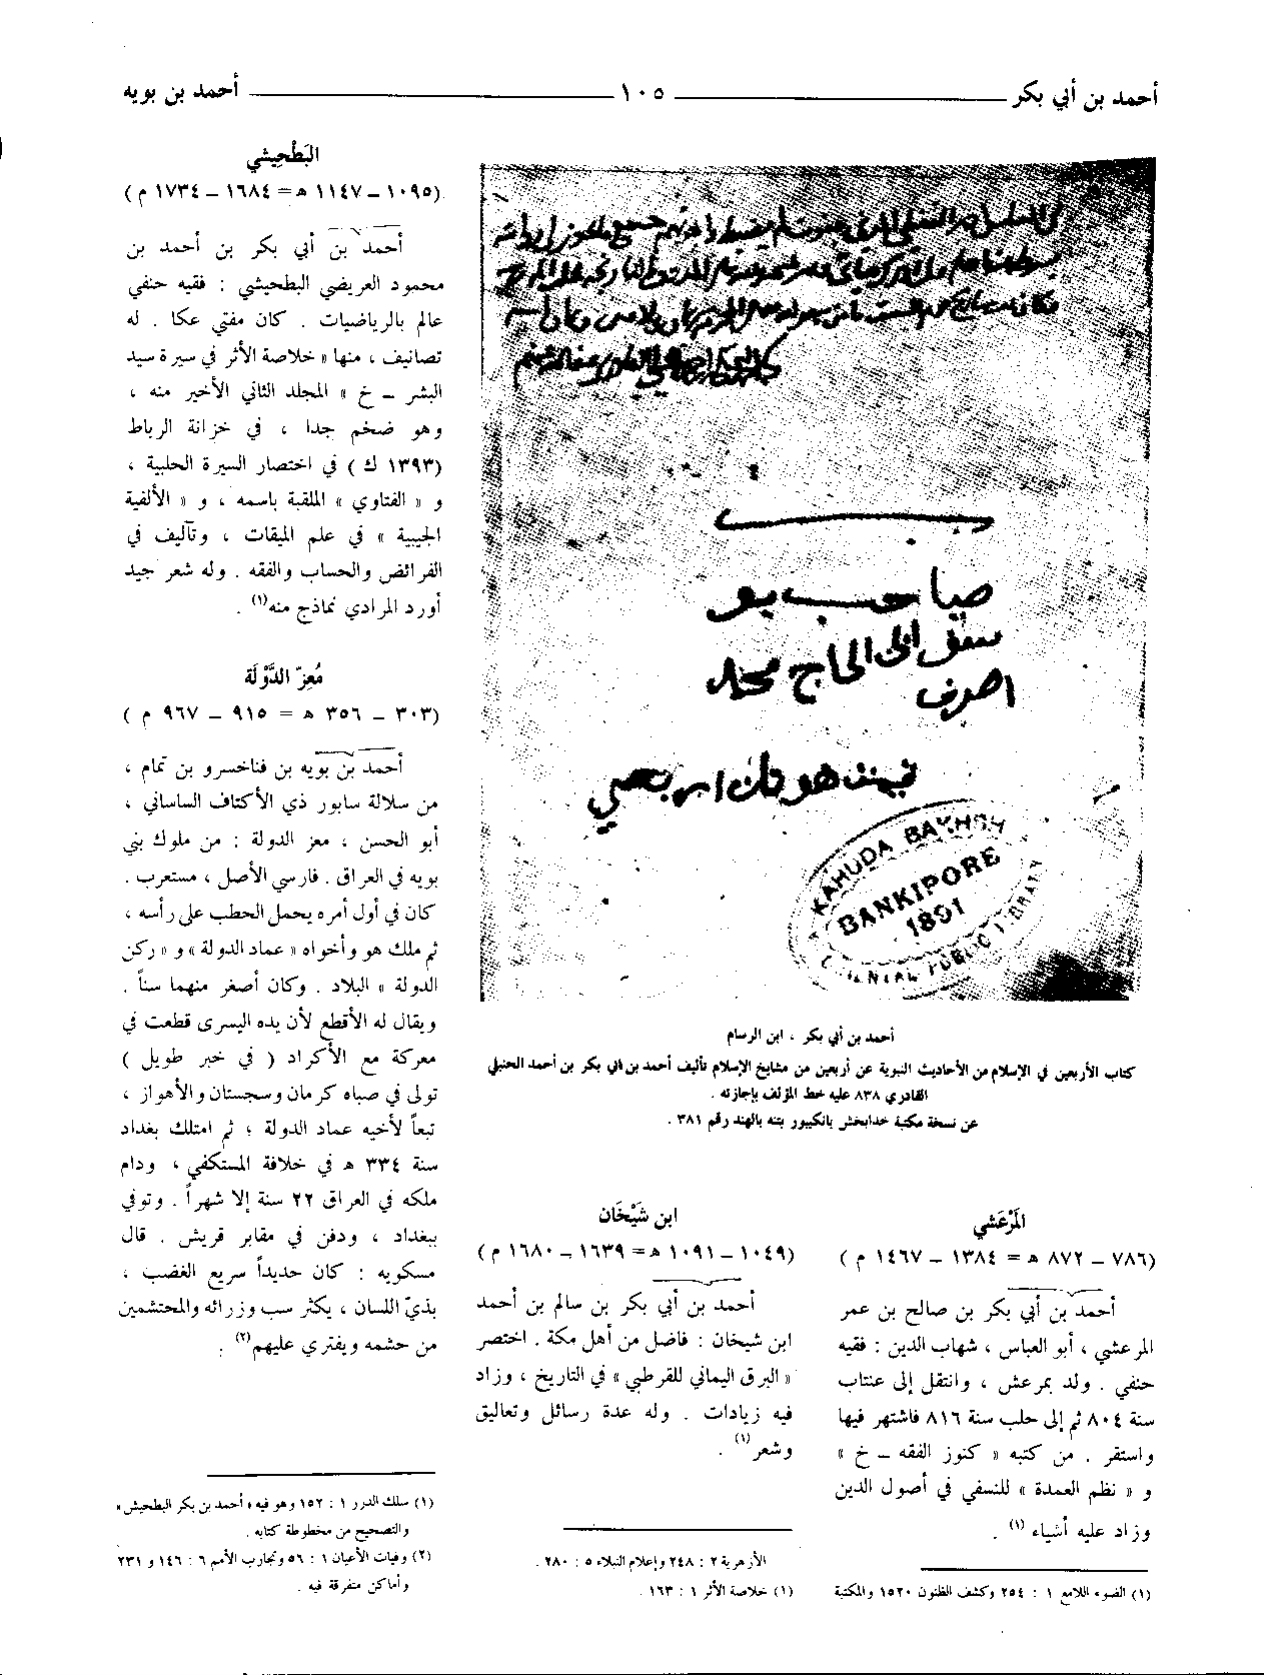 أحمد بن أبي بكر ١٠٥ أحمد بن بويه
صاحب
الحاج محمد
KAHUDA BAKHSH
BANKIPORE
1891
PUBLIC LIBRARY
أحمد بن أبي بكر ، ابن الرسام
كتاب الأربعين في الإسلام من الأحاديث النبوية عن أربعين من مشايخ الإسلام تأليف أحمد بن ابي بكر بن أحمد الحنبلي
القادري ٨٣٨ عليه خط المؤلف بإجازته .
عن نسخة مكتبة خدابخش بانكيبور بتنه بالهند رقم ٣٨١ .
المَرْعَشي
(٧٨٦ – ٨٧٢ ه = ١٣٨٤ – ١٤٦٧ م )
أحمد بن أبي بكر بن صالح بن عمر
المرعشي ، أبو العباس ، شهاب الدين : فقيه
حنفي . ولد بمرعش ، وانتقل إلى عنتاب
سنة ٨٠٤ ثم إلى حلب سنة ٨١٦ فاشتهر فيها
واستقر . من كتبه « كنوز الفقه – خ »
و « نظم العمدة » للنسفي في أصول الدين
وزاد عليه أشياء (١) .
(١) الضوء اللامع ١ : ٢٥٤ وكشف الظنون ١٥٢٠ والمكتبة
ابن شَيْخَان
(١٠٤٩ – ١٠٩١ ه = ١٦٣٩ – ١٦٨٠ م )
أحمد بن أبي بكر بن سالم بن أحمد
ابن شيخان : فاضل من أهل مكة . اختصر
« البرق اليماني للقرطبي » في التاريخ ، وزاد
فيه زيادات . وله عدة رسائل وتعاليق
وشعر (١) .
الأزهرية ٢ : ٢٤٨ وإعلام النبلاء ٥ : ٢٨٠ .
(١) خلاصة الأثر ١ : ١٦٣ .
البَطْحِيشي
(١٠٩٥ – ١١٤٧ ه = ١٦٨٤ – ١٧٣٤ م )
أحمد بن أبي بكر بن أحمد بن
محمود العريضي البطحيشي : فقيه حنفي
عالم بالرياضيات . كان مفتي عكا . له
تصانيف ، منها « خلاصة الأثر في سيرة سيد
البشر – خ » المجلد الثاني الأخير منه ،
وهو ضخم جدا ، في خزانة الرباط
(١٣٩٣ ك ) في اختصار السيرة الحلبية ،
و « الفتاوي » الملقبة باسمه ، و « الألفية
الجيبية » في علم الميقات ، وتآليف في
الفرائض والحساب والفقه . وله شعر جيد
أورد المرادي نماذج منه(١) .
مُعِزّ الدَّوْلَة
(٣٠٣ – ٣٥٦ ه = ٩١٥ – ٩٦٧ م )
أحمد بن بويه بن فناخسرو بن تمام ،
من سلالة سابور ذي الأكتاف الساساني ،
أبو الحسن ، معز الدولة : من ملوك بني
بويه في العراق . فارسي الأصل ، مستعرب .
كان في أول أمره يحمل الحطب على رأسه ،
ثم ملك هو وأخواه « عماد الدولة » و « ركن
الدولة » البلاد . وكان أصغر منهما سناً .
ويقال له الأقطع لأن يده اليسرى قطعت في
معركة مع الأكراد ( في خبر طويل )
تولى في صباه كرمان وسجستان والأهواز ،
تبعاً لأخيه عماد الدولة ؛ ثم امتلك بغداد
سنة ٣٣٤ ه في خلافة المستكفي ، ودام
ملكه في العراق ٢٢ سنة إلا شهراً . وتوفي
ببغداد ، ودفن في مقابر قريش . قال
مسكويه : كان حديداً سريع الغضب ،
بذيّ اللسان ، يكثر سب وزرائه والمحتشمين
من حشمه ويفتري عليهم(٢) .
(١) سلك الدرر ١ : ١٥٢ وهو فيه « أحمد بن بكر البطحيش »
والتصحيح من مخطوطة كتابه .
(٢) وفيات الأعيان ١ : ٥٦ وتجارب الأمم ٦ : ١٤٦ و ٢٣١
وأماكن متفرقة فيه .